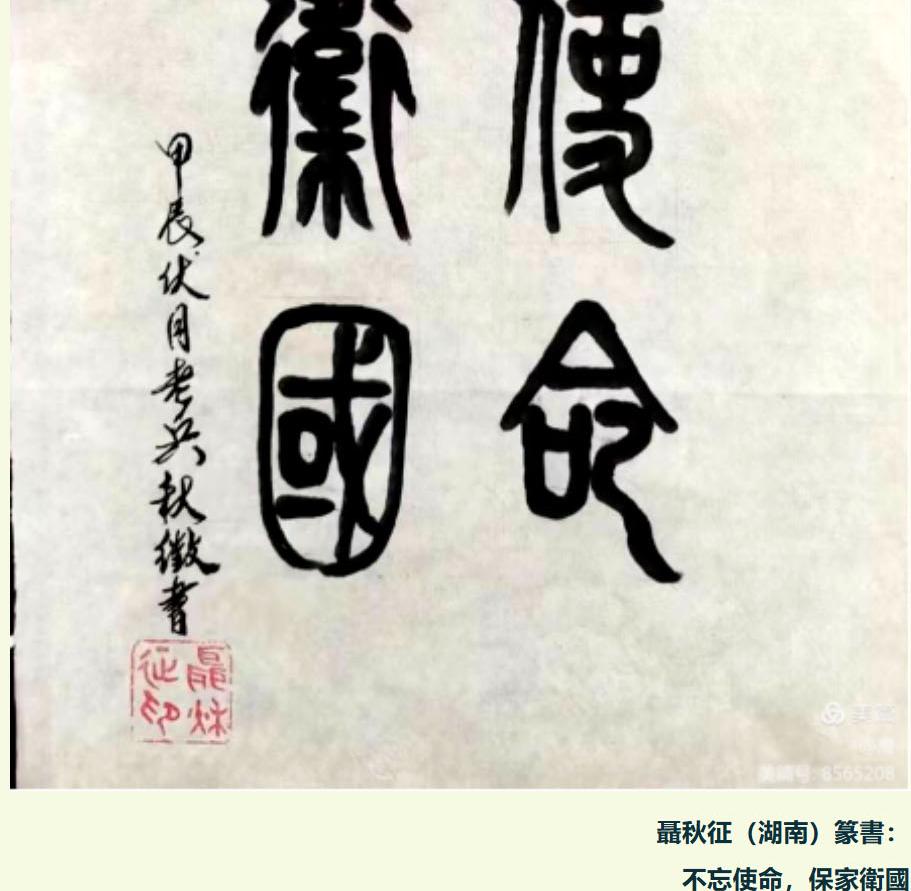 使命
衛國
甲辰伏月老兵秋徵書
聶秋征印
美篇
美篇号: 8565208
聶秋征（湖南）篆書：
不忘使命，保家衛國